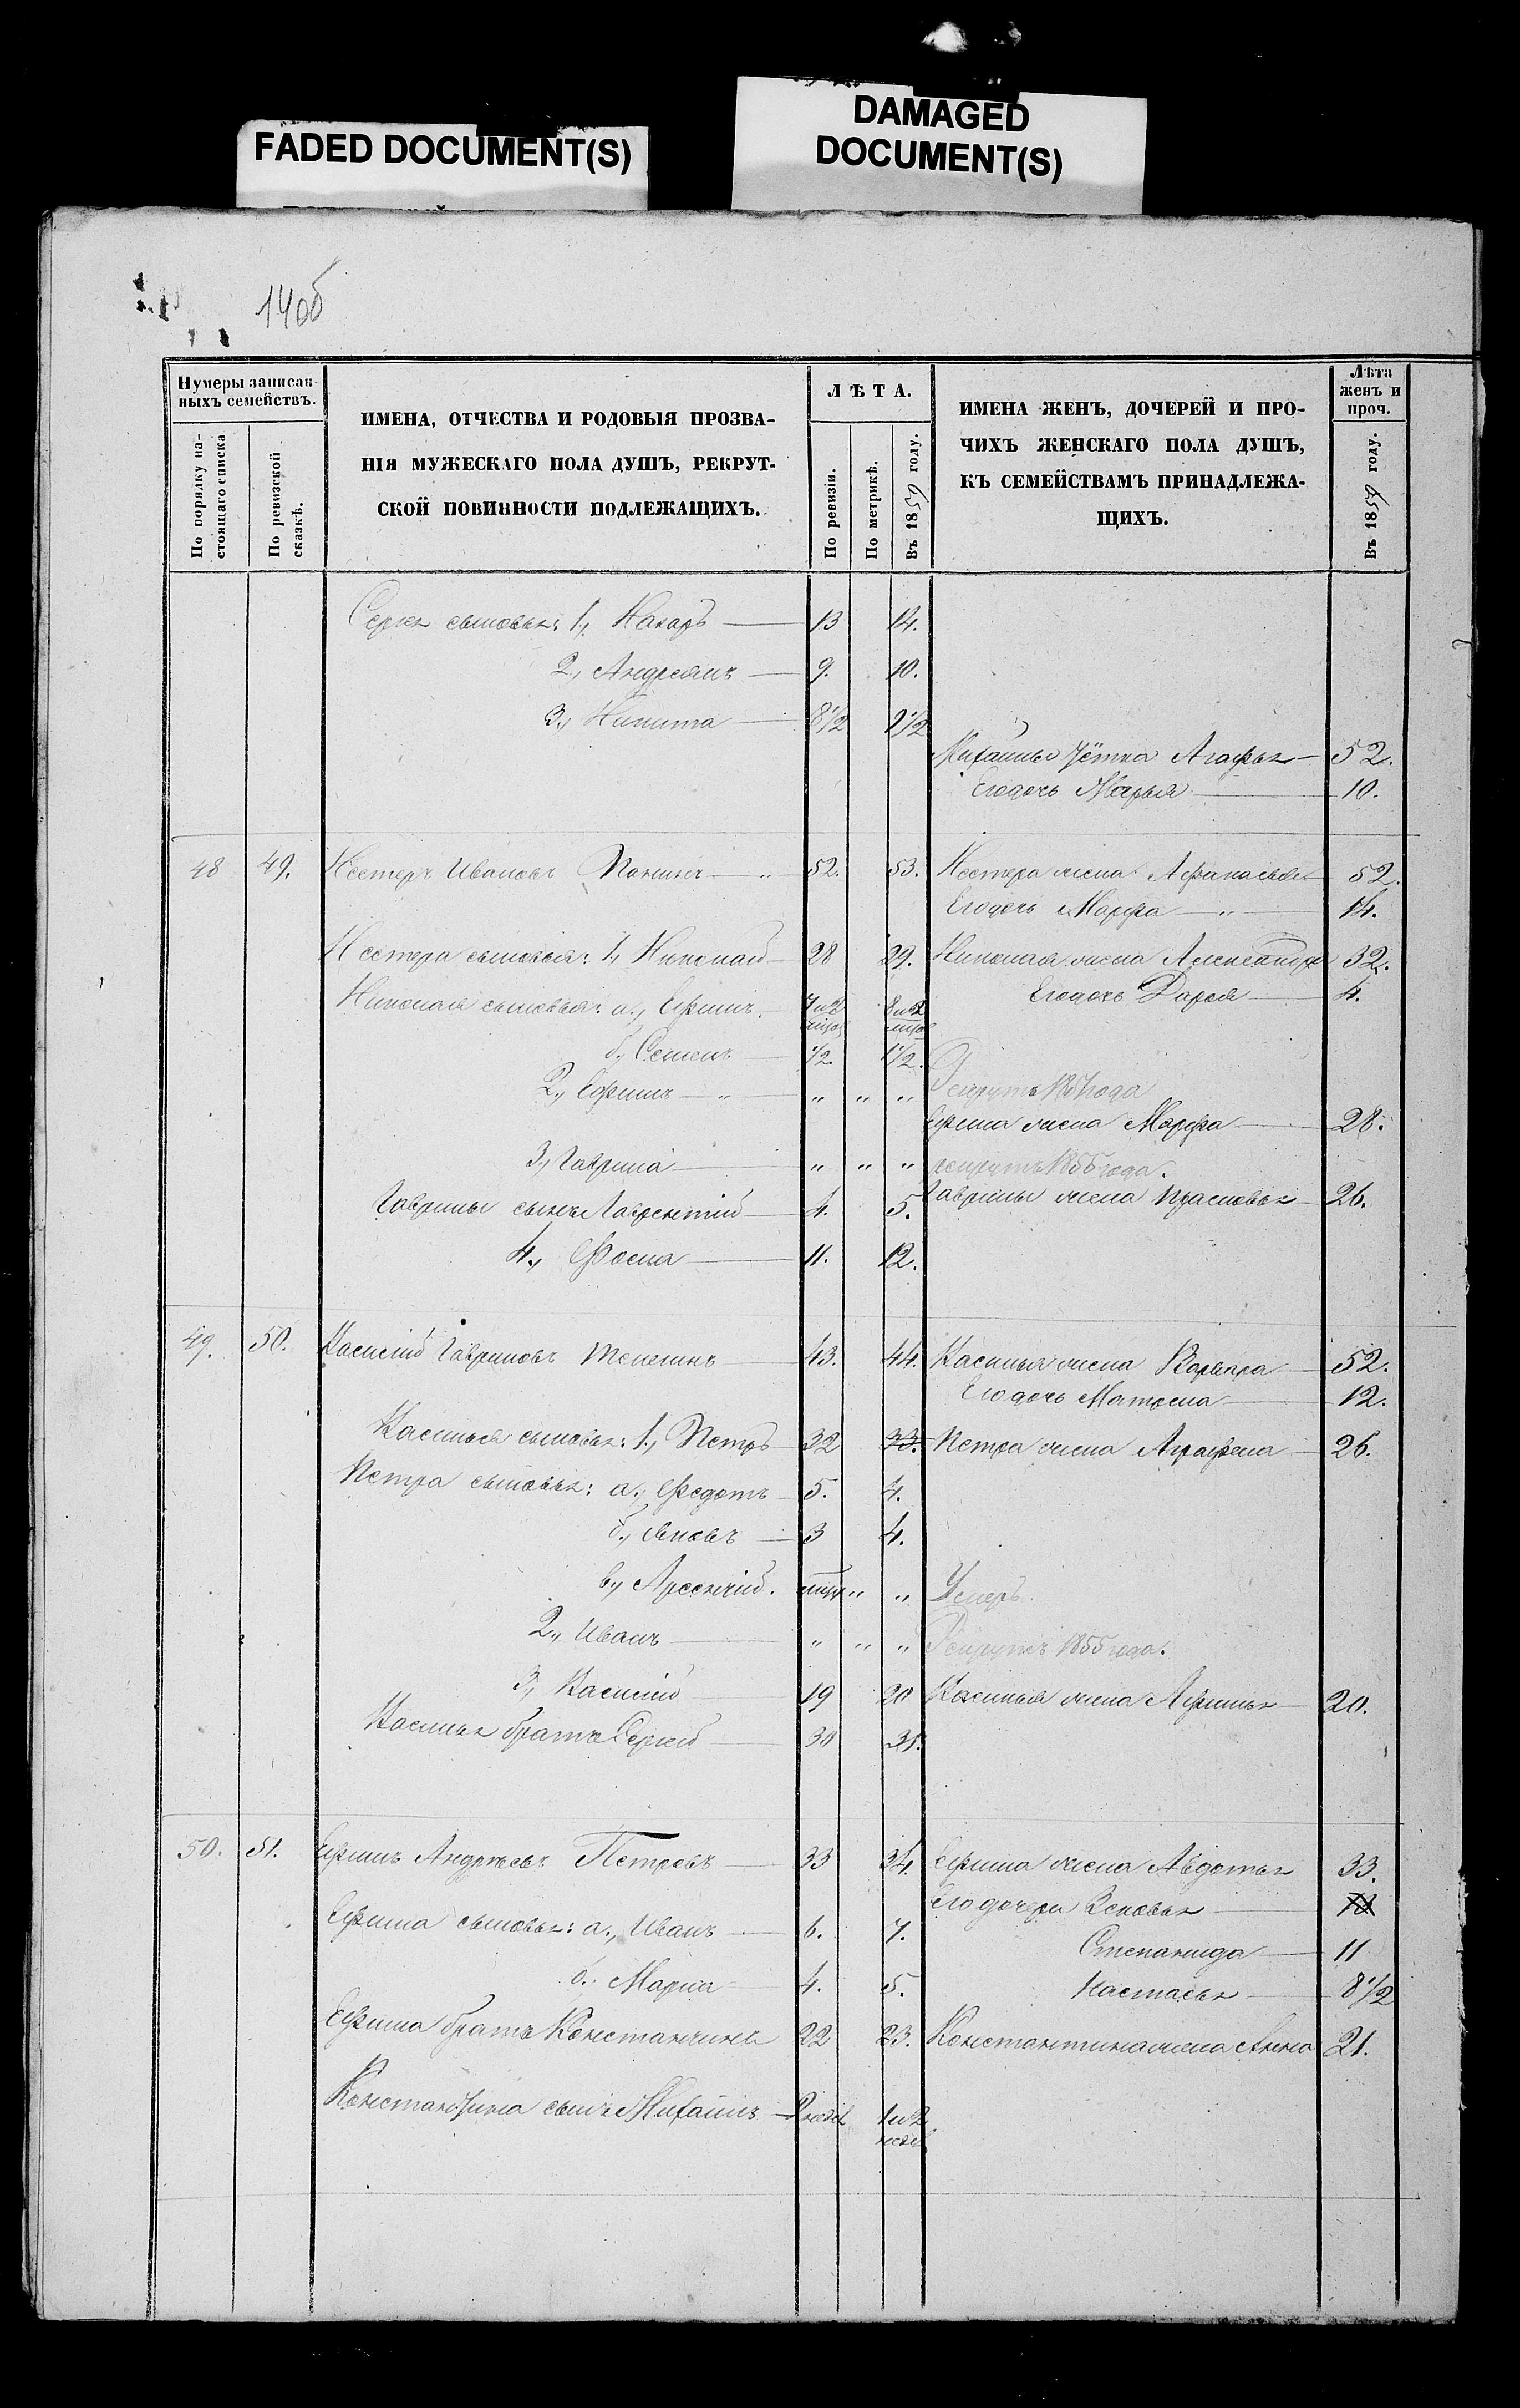 FADED DOCUMENT(S)
DAMAGED
DOCUMENT(S)
140об
Нумеры записан-
ныхъ семействъ.
По порядку на-
стоящаго списка
По ревизской
сказкѣ.
ИМЕНА, ОТЧЕСТВА И РОДОВЫЯ ПРОЗВА-
НІЯ МУЖЕСКАГО ПОЛА ДУШЪ, РЕКРУТ-
СКОЙ ПОВИННОСТИ ПОДЛЕЖАЩИХЪ.
ЛѢТА.
По ревизіи.
По метрикѣ.
Въ 1859 году.
ИМЕНА ЖЕНЪ, ДОЧЕРЕЙ И ПРО-
ЧИХЪ ЖЕНСКАГО ПОЛА ДУШЪ,
КЪ СЕМЕЙСТВАМЪ ПРИНАДЛЕЖА-
ЩИХЪ.
Лѣта
женъ и
проч.
Въ 1859 году.
сыновья: 1, Назаръ 13 14.
2, Андреянъ 9. 10.
3, Никита 8 1/2 9 1/2
Михайлы тётка Агафья 52.
Его дочь Марья 10.
48 49. Нестеръ Ивановъ 52. 53. Нестера жена 52.
Его дочь Марфа 14.
Нестера сыновья: 1, Николай 28 29. Николая жена Александра 32.
Николая сыновья: а, Ефимъ 7 и 2 8 и 2 Его дочь Дарья 4.
б, Семенъ 1/2 1 1/2.
2, Ефимъ " " " Рекрутъ 1857 года
Ефима жена Марфа 28.
3, Гаврила " " " рекрутъ 1855 года.
Гаврилы сынъ Лаврентій 4. 5. Гаврилы жена Прасковья 26.
4, Фома 11. 12.
49. 50. Василій Гавриловъ 43. 44. Василья жена Варвара 52.
Его дочь Матрена 12.
Василья сыновья: 1, Петръ 32 33. Петра жена Аграфена 26.
Петра сыновья: а, Федотъ 5. 4.
б, Яковъ 3 4.
в, Арсентій. " " Умеръ.
2, Иванъ " " " Рекрутъ 1855 года.
3, Василій 19 20 Василья жена Афимья 20.
Василья братъ Сергей 30 31.
50. 51. Ефимъ Андреевъ Петровъ 33 34. Ефима жена Авдотья 33.
Его дочери Зеновья
Ефима сыновья: а, Иванъ 6. 7.
Степанида 11
б. 4. 5. Настасья 8 1/2
Ефима братъ Константинъ 22 23. Константина жена Анна 21.
Константина сынъ Михаилъ 2 недел 1 и 2
недел